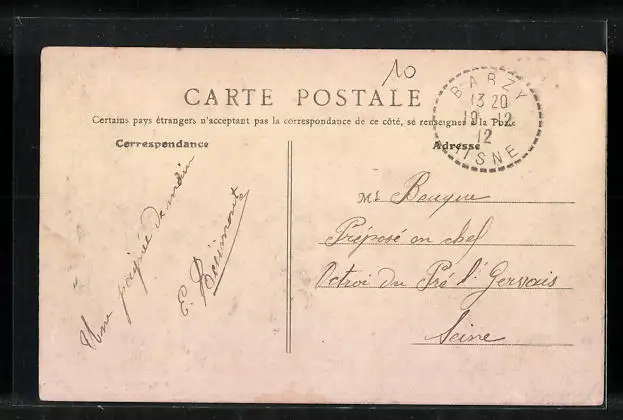 10
CARTE POSTALE
Certains pays étrangers n'acceptant pas la correspondance de ce côté, se renseigner à la Poste
Correspondance
Adresse
BARZY
13 20
19 - 12
12
AISNE
Une poignée de main
E.
Mr Bouque
Préposé en chef
Octroi du Pré St Gervais
Seine